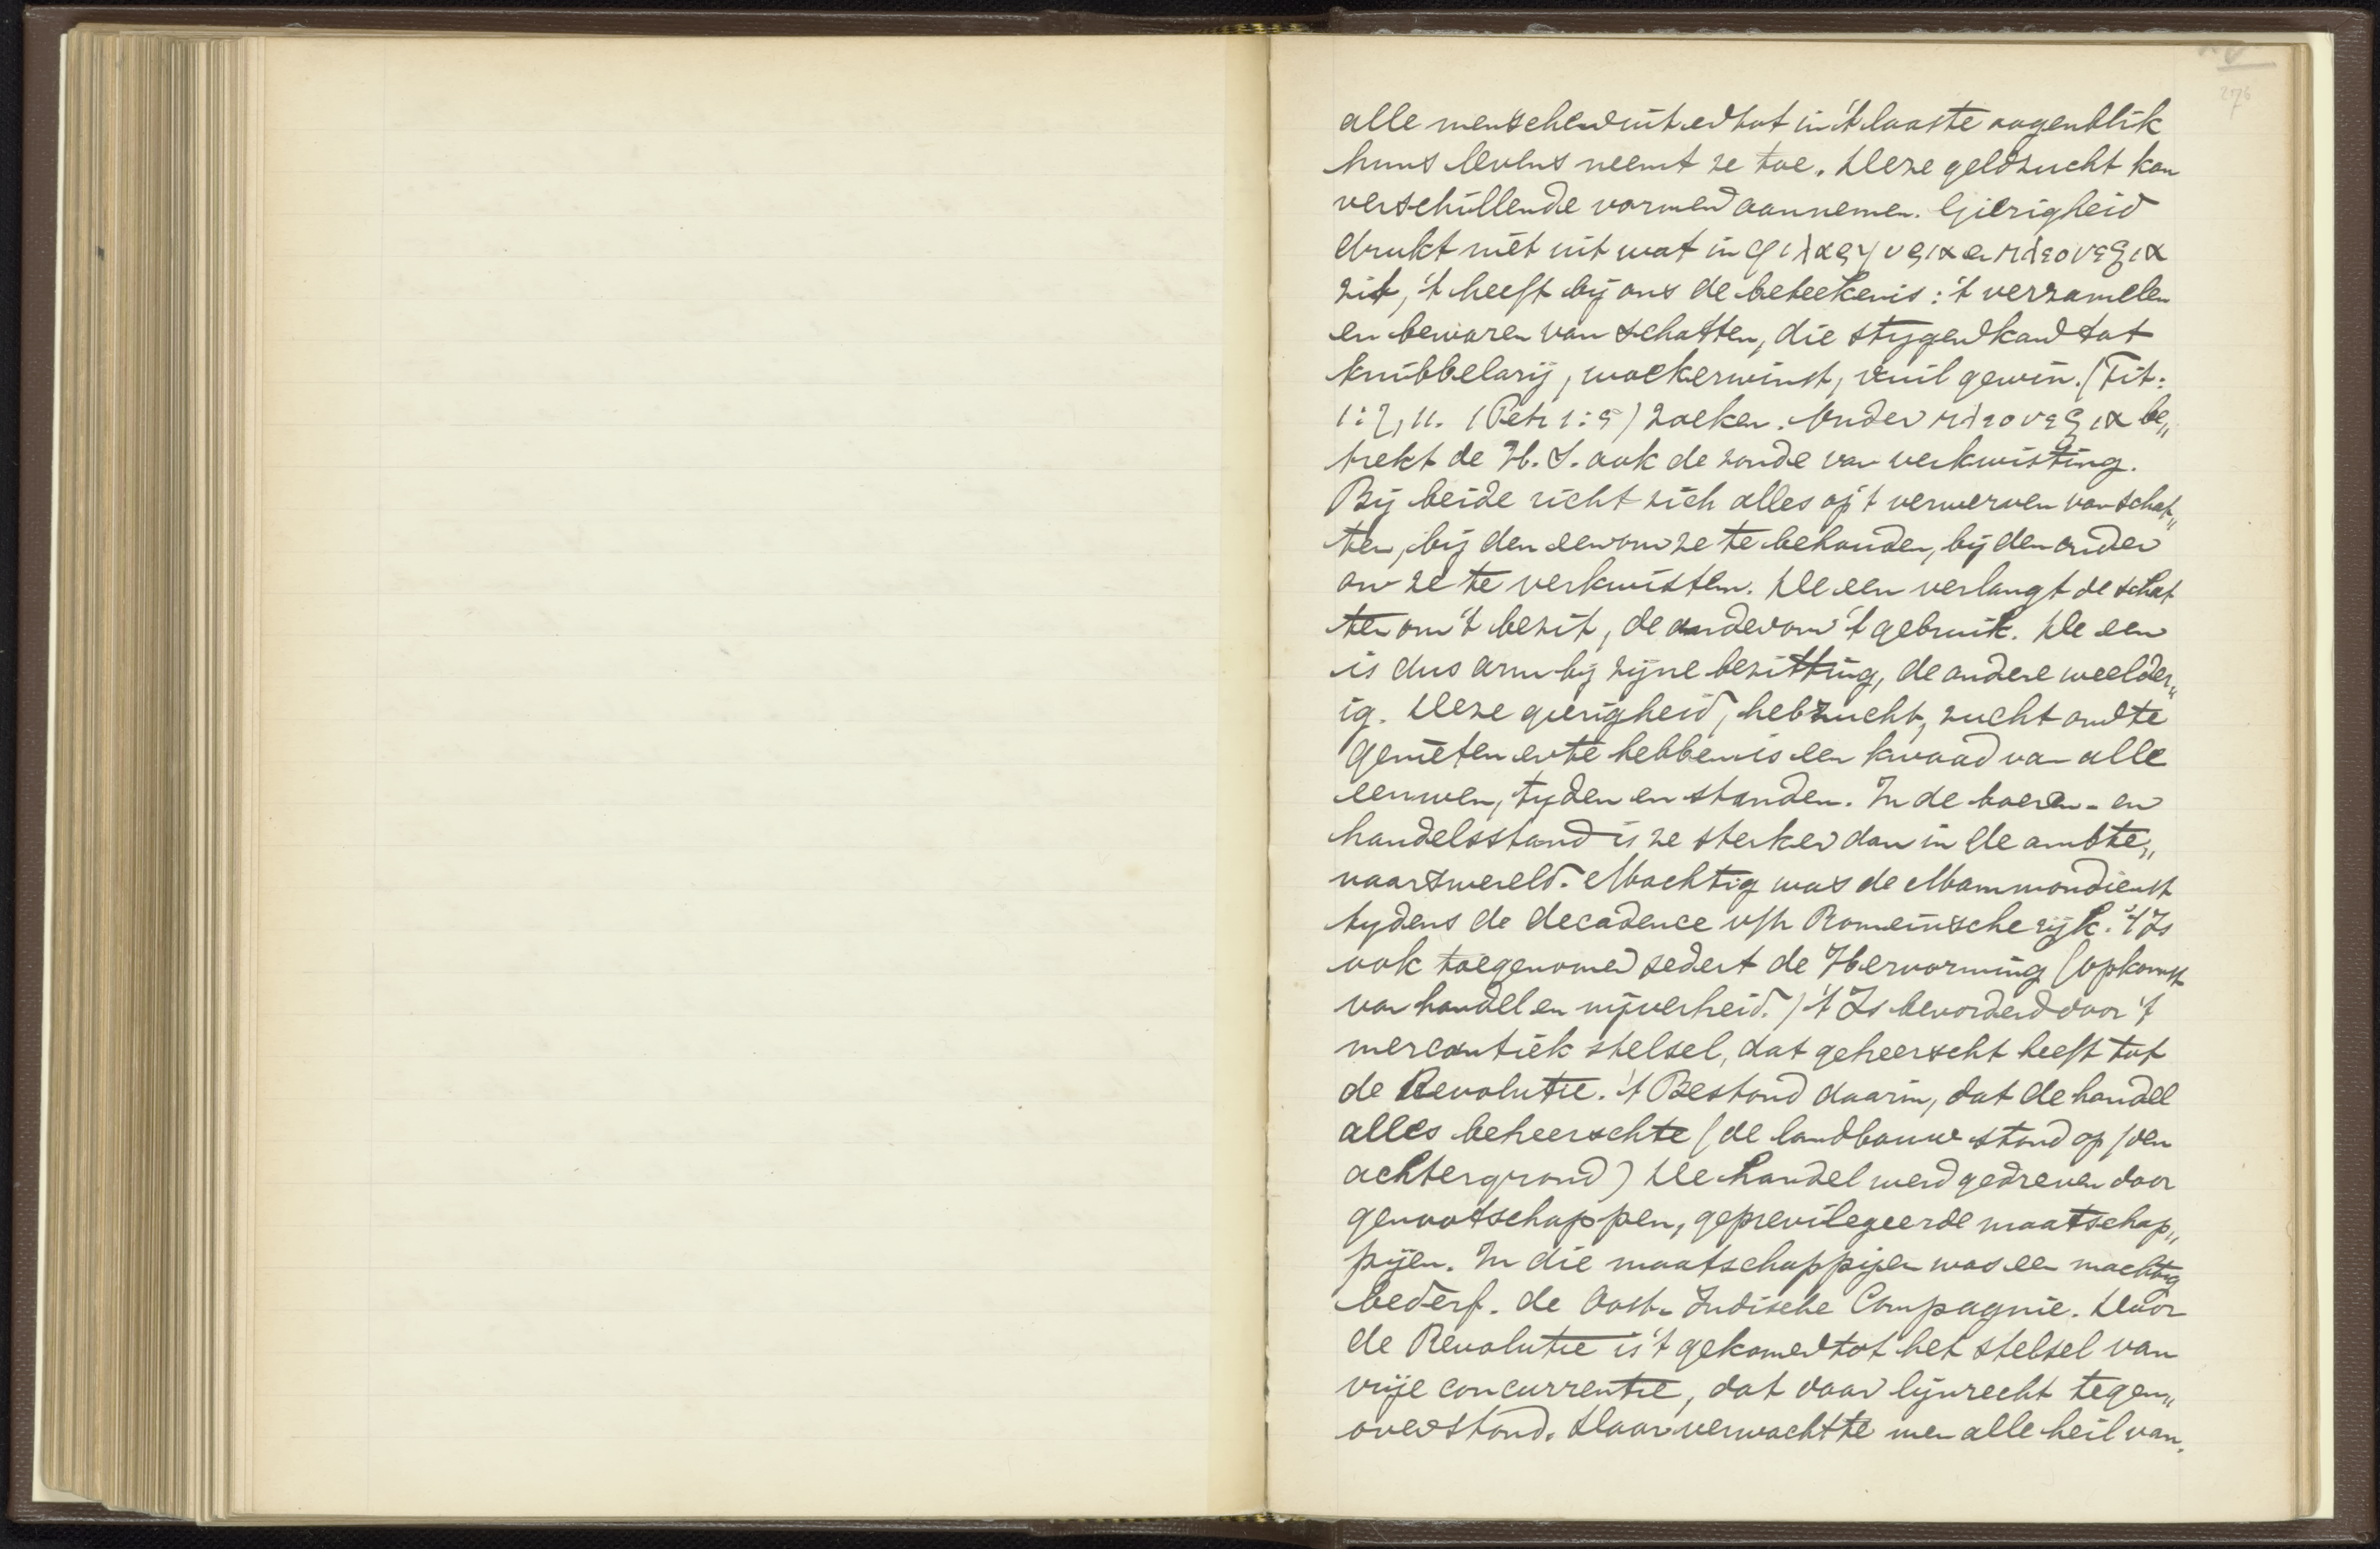 276
alle menschen uit en tot in 't laaste oogenblik
huns levens neemt ze toe. Deze geldzucht kan
verschillende vormen aannemen. Gierigheid
drukt niet uit wat in φιλαργυρια en πλεονεξια
zit, 't heeft bij ons de beteekenis: 't verzamelen
en bewaren van schatten, die stygen kan tot
knibbelarij, woekerwinst, vuil gewin. (Tit:
1:7, 11. 1 Petr 1:5) zoeken. Onder πλεονεξια be„
trekt de H. S. ook de zonde van verkwisting.
Bij beide richt zich alles op 't verwerven van schat„
ten, bij den een om ze te behouden, bij den ander
om ze te verkwisten. De een verlangt de schat
ten om 't bezit, de ander om 't gebruik. De een
is dus arm bij zijne bezitting, de andere weelder„
ig. Deze gierigheid, hebzucht, zucht om te
genieten en te hebben is een kwaad van alle
eeuwen, tyden en standen. In de boeren- en
handelsstand is ze sterker dan in de ambte„
naarswereld. Machtig was de Mammondienst
tydens de decadence v/h Romeinsche rijk. 't Is
ook toegenomen sedert de Hervorming (opkomst
van handel en nijverheid.) 't Is bevorderd door 't
mercantiek stelsel, dat geheerscht heeft tot
de Revolutie. 't Bestond daarin, dat de handel
alles beheerschte (de landbouw stond op den
achtergrond) De handel werd gedreven door
genootschappen, geprevilegeerde maatschap„
pijen. In die maatschappijen was een machtig
bederf. de Oost-Indische Compagnie. Door
de Revolutie is 't gekomen tot het stelsel van
vrije concurrentie, dat daar lijnrecht tegen„
over stond. Daar verwachtte men alle heil van.